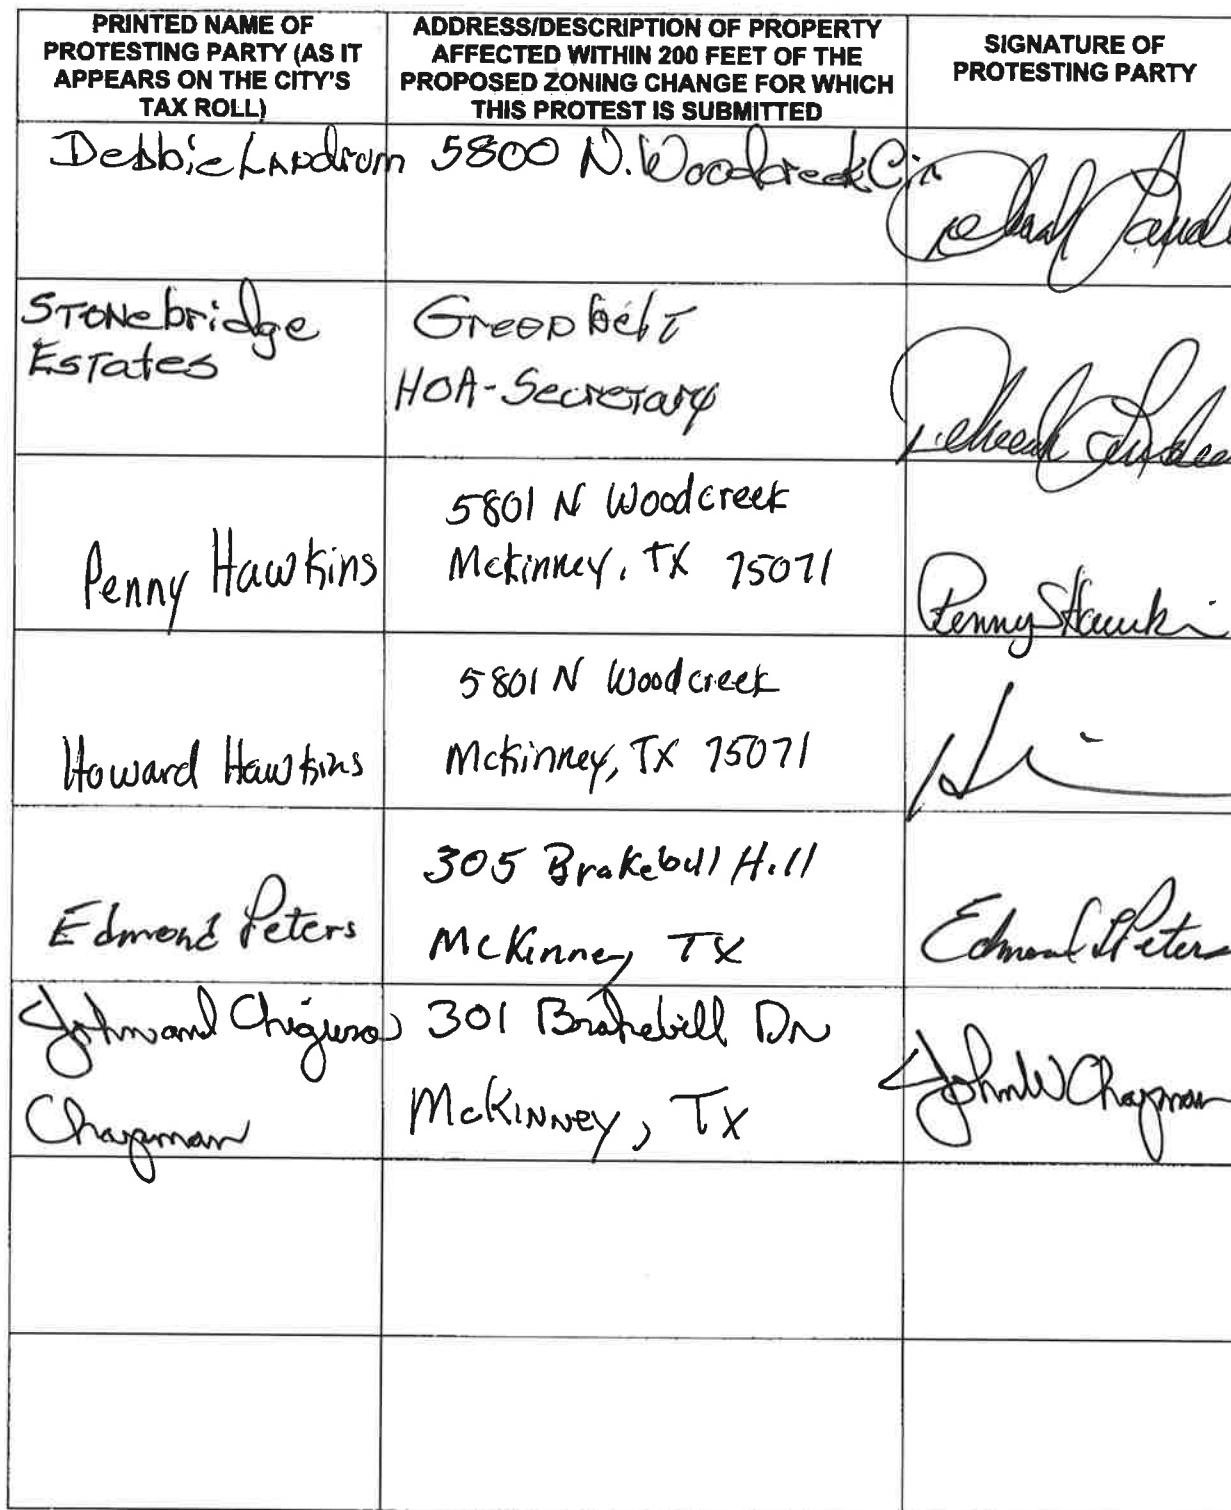 PRINTED NAME OF
PROTESTING PARTY (AS IT
APPEARS ON THE CITY'S
TAX ROLL)
ADDRESS/DESCRIPTION OF PROPERTY
AFFECTED WITHIN 200 FEET OF THE
PROPOSED ZONING CHANGE FOR WHICH
THIS PROTEST IS SUBMITTED
SIGNATURE OF
PROTESTING PARTY
Debbie Landrum
5800 N. Woodcreek Cir
Stonebridge
Estates
Greenbelt
HOA-Secretary
Penny Hawkins
5801 N Woodcreek
McKinney, TX 75071
Penny S Hawki
Howard Hawkins
5801 N Woodcreek
McKinney, TX 75071
Edmond Peters
305 Brakebill Hill
McKinney TX
Peters
John and
Chapman
301 Brakebill Dr
McKinney, Tx
John W Chapman